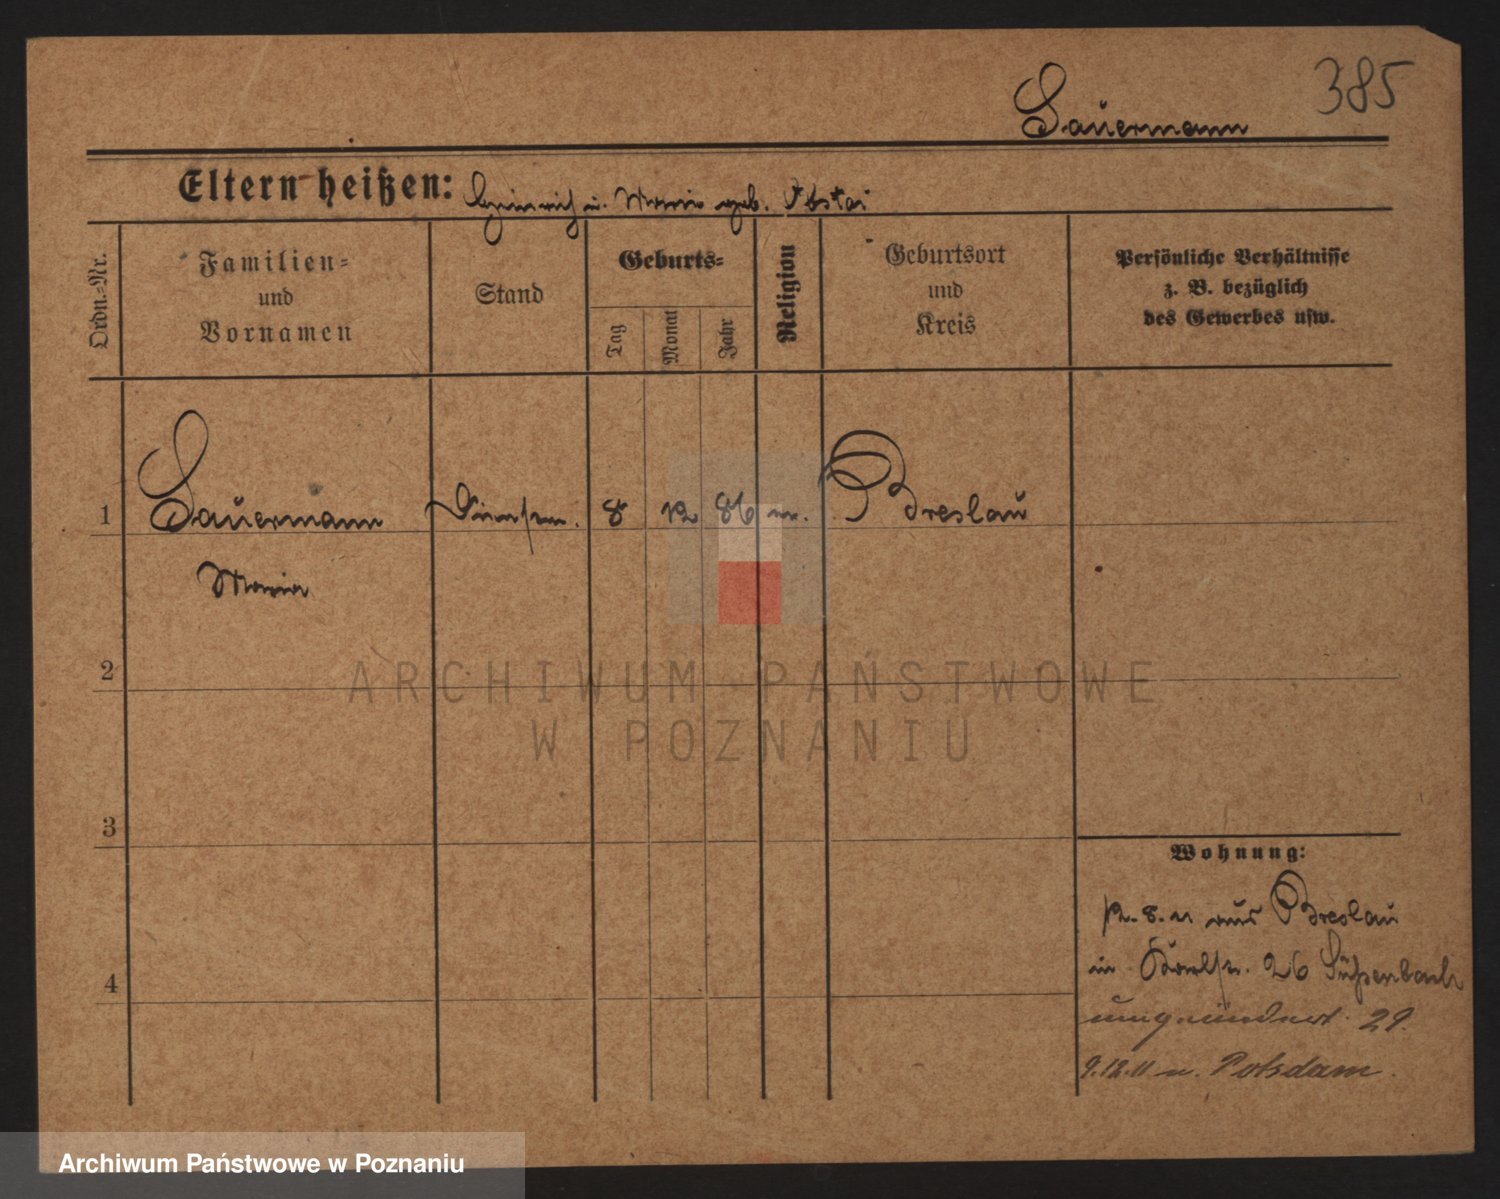 385
Sauermann
Eltern heißen: Heinrich u. Marie geb.
Ordn.-Nr.
Familien-
und
Vornamen
Stand
Geburts-
Tag
Monat
Jahr
Religion
Geburtsort
und
Kreis
Persönliche Verhältnisse
z. B. bezüglich
des Gewerbes usw.
1 Sauermann 8 12 86 Breslau
Maria
2
3
4
Wohnung:
12. 8. 11 aus Breslau
in 26
29.
9.12.11 n. Potsdam.
ARCHIWUM PAŃSTWOWE
W POZNANIU
Archiwum Państwowe w Poznaniu